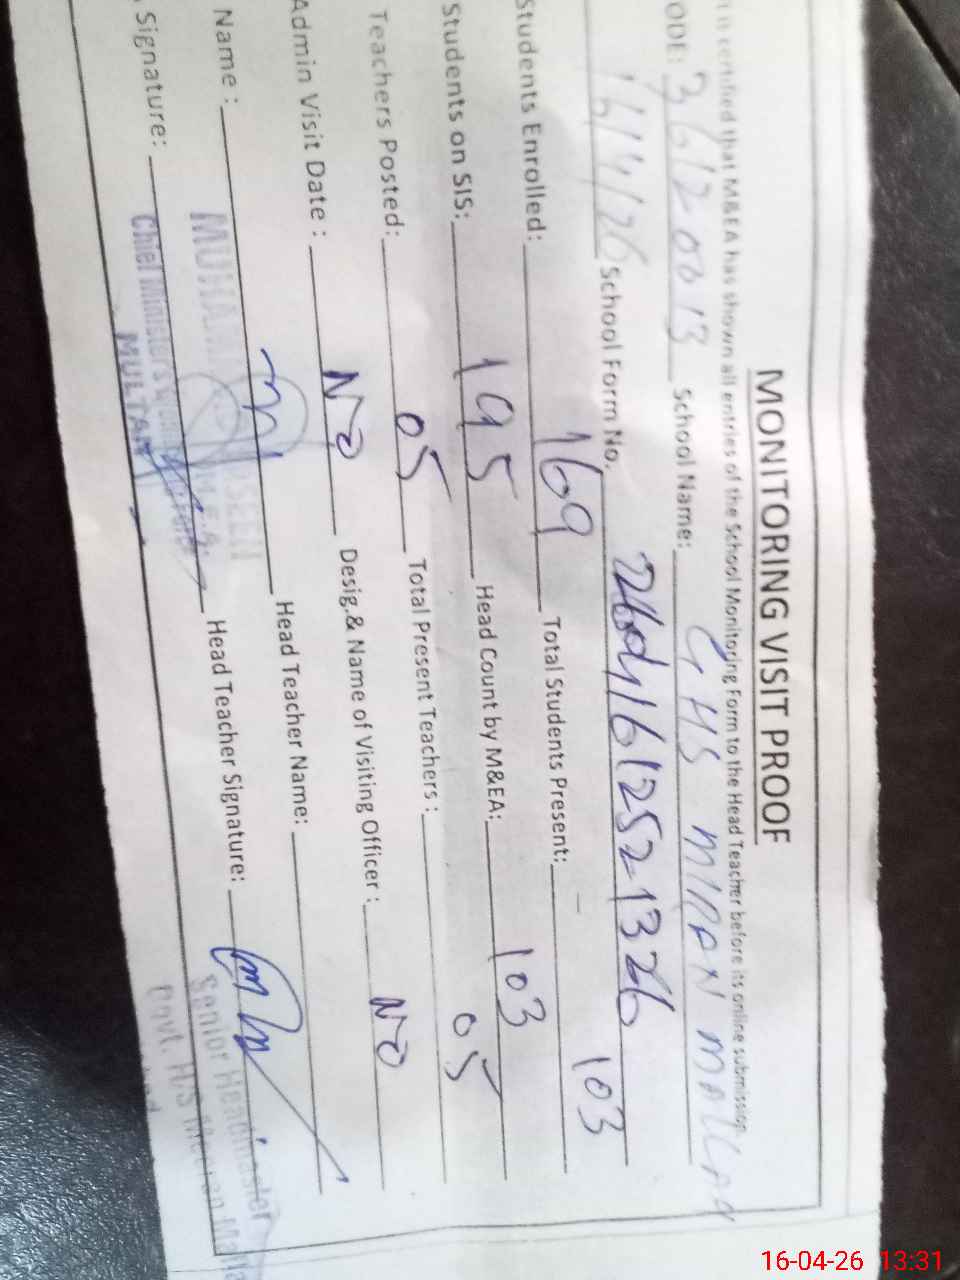 MONITORING VISIT PROOF
certified that M&EA has shown all entries of the School Monitoring Form to the Head Teacher before its online submission
ODE: 36120013 School Name: GHS MIRAN MALLAH
16/4/26 School Form No. 26041612521326
Students Enrolled: 169 Total Students Present: 103
Students on SIS: 195 Head Count by M&EA: 103
Teachers Posted: 05 Total Present Teachers: 05
Admin Visit Date: NO Desig.& Name of Visiting Officer: NO
Name: Head Teacher Name:
Signature: Head Teacher Signature:
Chief Minister's
MULTAN
Senior Headmaster
Govt. H/S
16-04-26 13:31